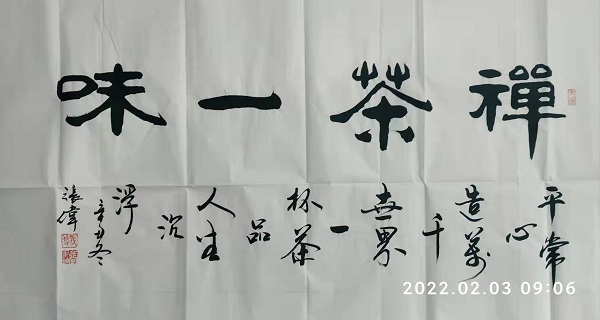 禪茶一味
平常
心
造萬
千
世界
一
杯茶
品
人生
沉
浮
辛丑冬
張偉
2022.02.03 09:06